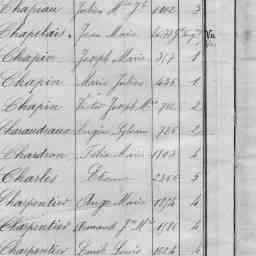 Chapeau Julien M 1102 3
Chapelais Jean Marie
Chapin Joseph Marie 317 1
Chapin Marie Julien 436 1
Chapin Victor Joseph Mie 2
Charaudeau Eugène 726 2
Chardron Félix Marie 1803 4
Charles Etienne 2366 5
Charpentier Ange Marie 4
Charpentier Armand Jn Mie 4
Charpentier Louis 1624 4
Vu